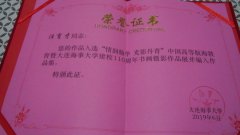 荣誉证书
您的作品入选"情润海事 光影丹青"中国高等航海教
育暨大连海事大学建校110周年书画摄影作品展并编入作
品集。
特颁此证。
大连海事大学
2019年6月